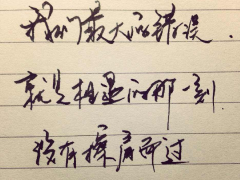 我们最大的错误.
就是相遇的那一刻
没有擦肩而过